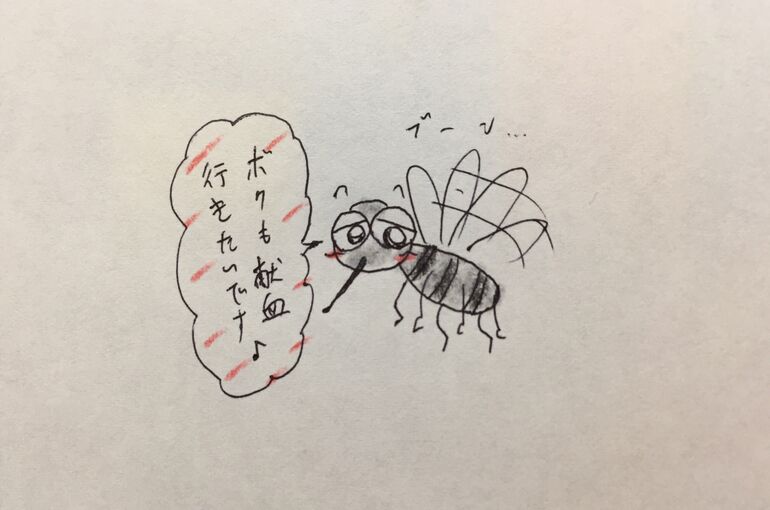 ボクも献血♪
行きたいです
ブーン…